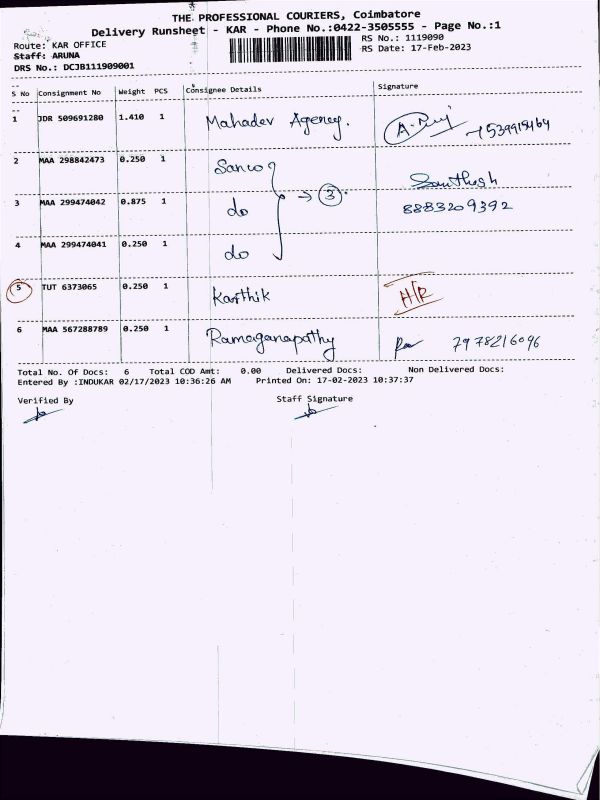 THE PROFESSIONAL COURIERS, Coimbatore
Delivery Runsheet - KAR - Phone No.:0422-3505555 - Page No.:1
Route: KAR OFFICE RS No.: 1119090
Staff: ARUNA RS Date: 17-Feb-2023
DRS No.: DCJB111909001
S No Consignment No Weight PCS Consignee Details Signature
1 JDR 509691280 1.410 1 Mahadev Agency.
2 MAA 298842473 0.250 1 Sanco
Santhosh
3 MAA 299474042 0.875 1 do → 3 8883209392
4 MAA 299474041 0.250 1 do
5 TUT 6373065 0.250 1 Karthik H/R
6 MAA 567288789 0.250 1 Ramaganapathy 7978216096
Total No. Of Docs: 6 Total COD Amt: 0.00 Delivered Docs: Non Delivered Docs:
Entered By :INDUKAR 02/17/2023 10:36:26 AM Printed On: 17-02-2023 10:37:37
Verified By Staff Signature